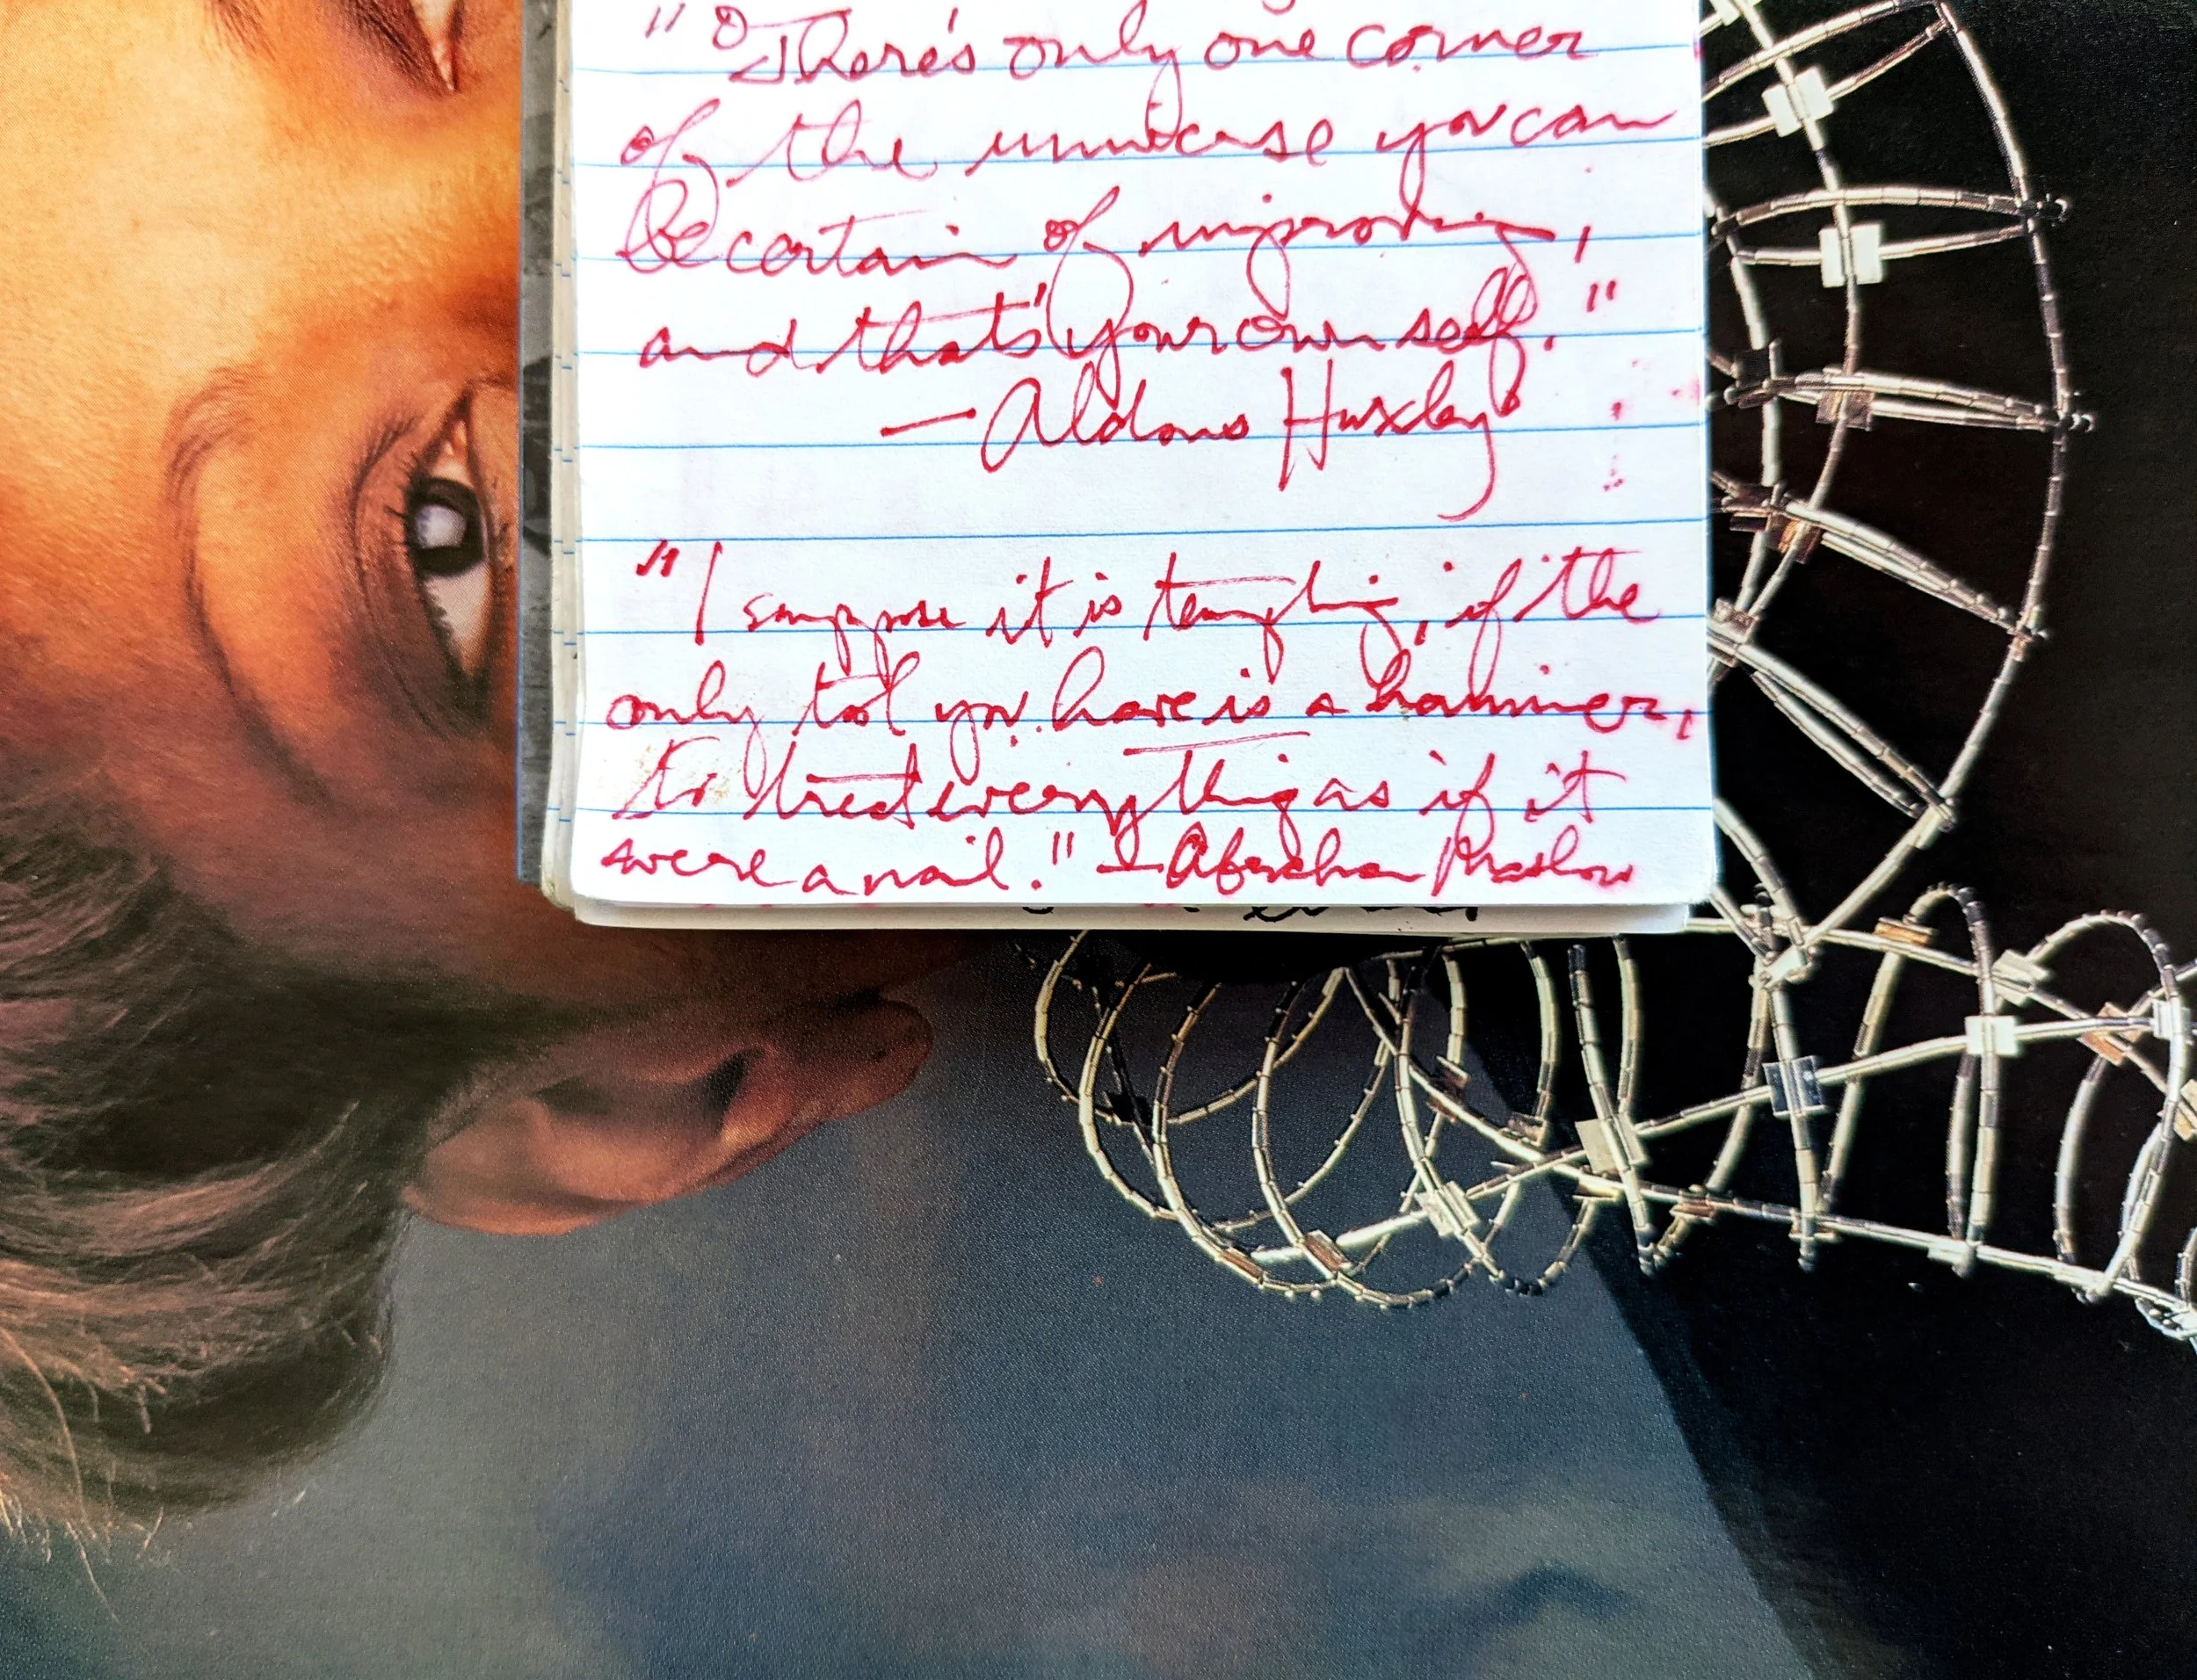 "There's only one corner
of the universe you can
be certain of improving,
and that's your own self."
— Aldous Huxley
"I suppose it is tempting, if the
only tool you have is a hammer,
to treat everything as if it
were a nail." — Abraham Maslow